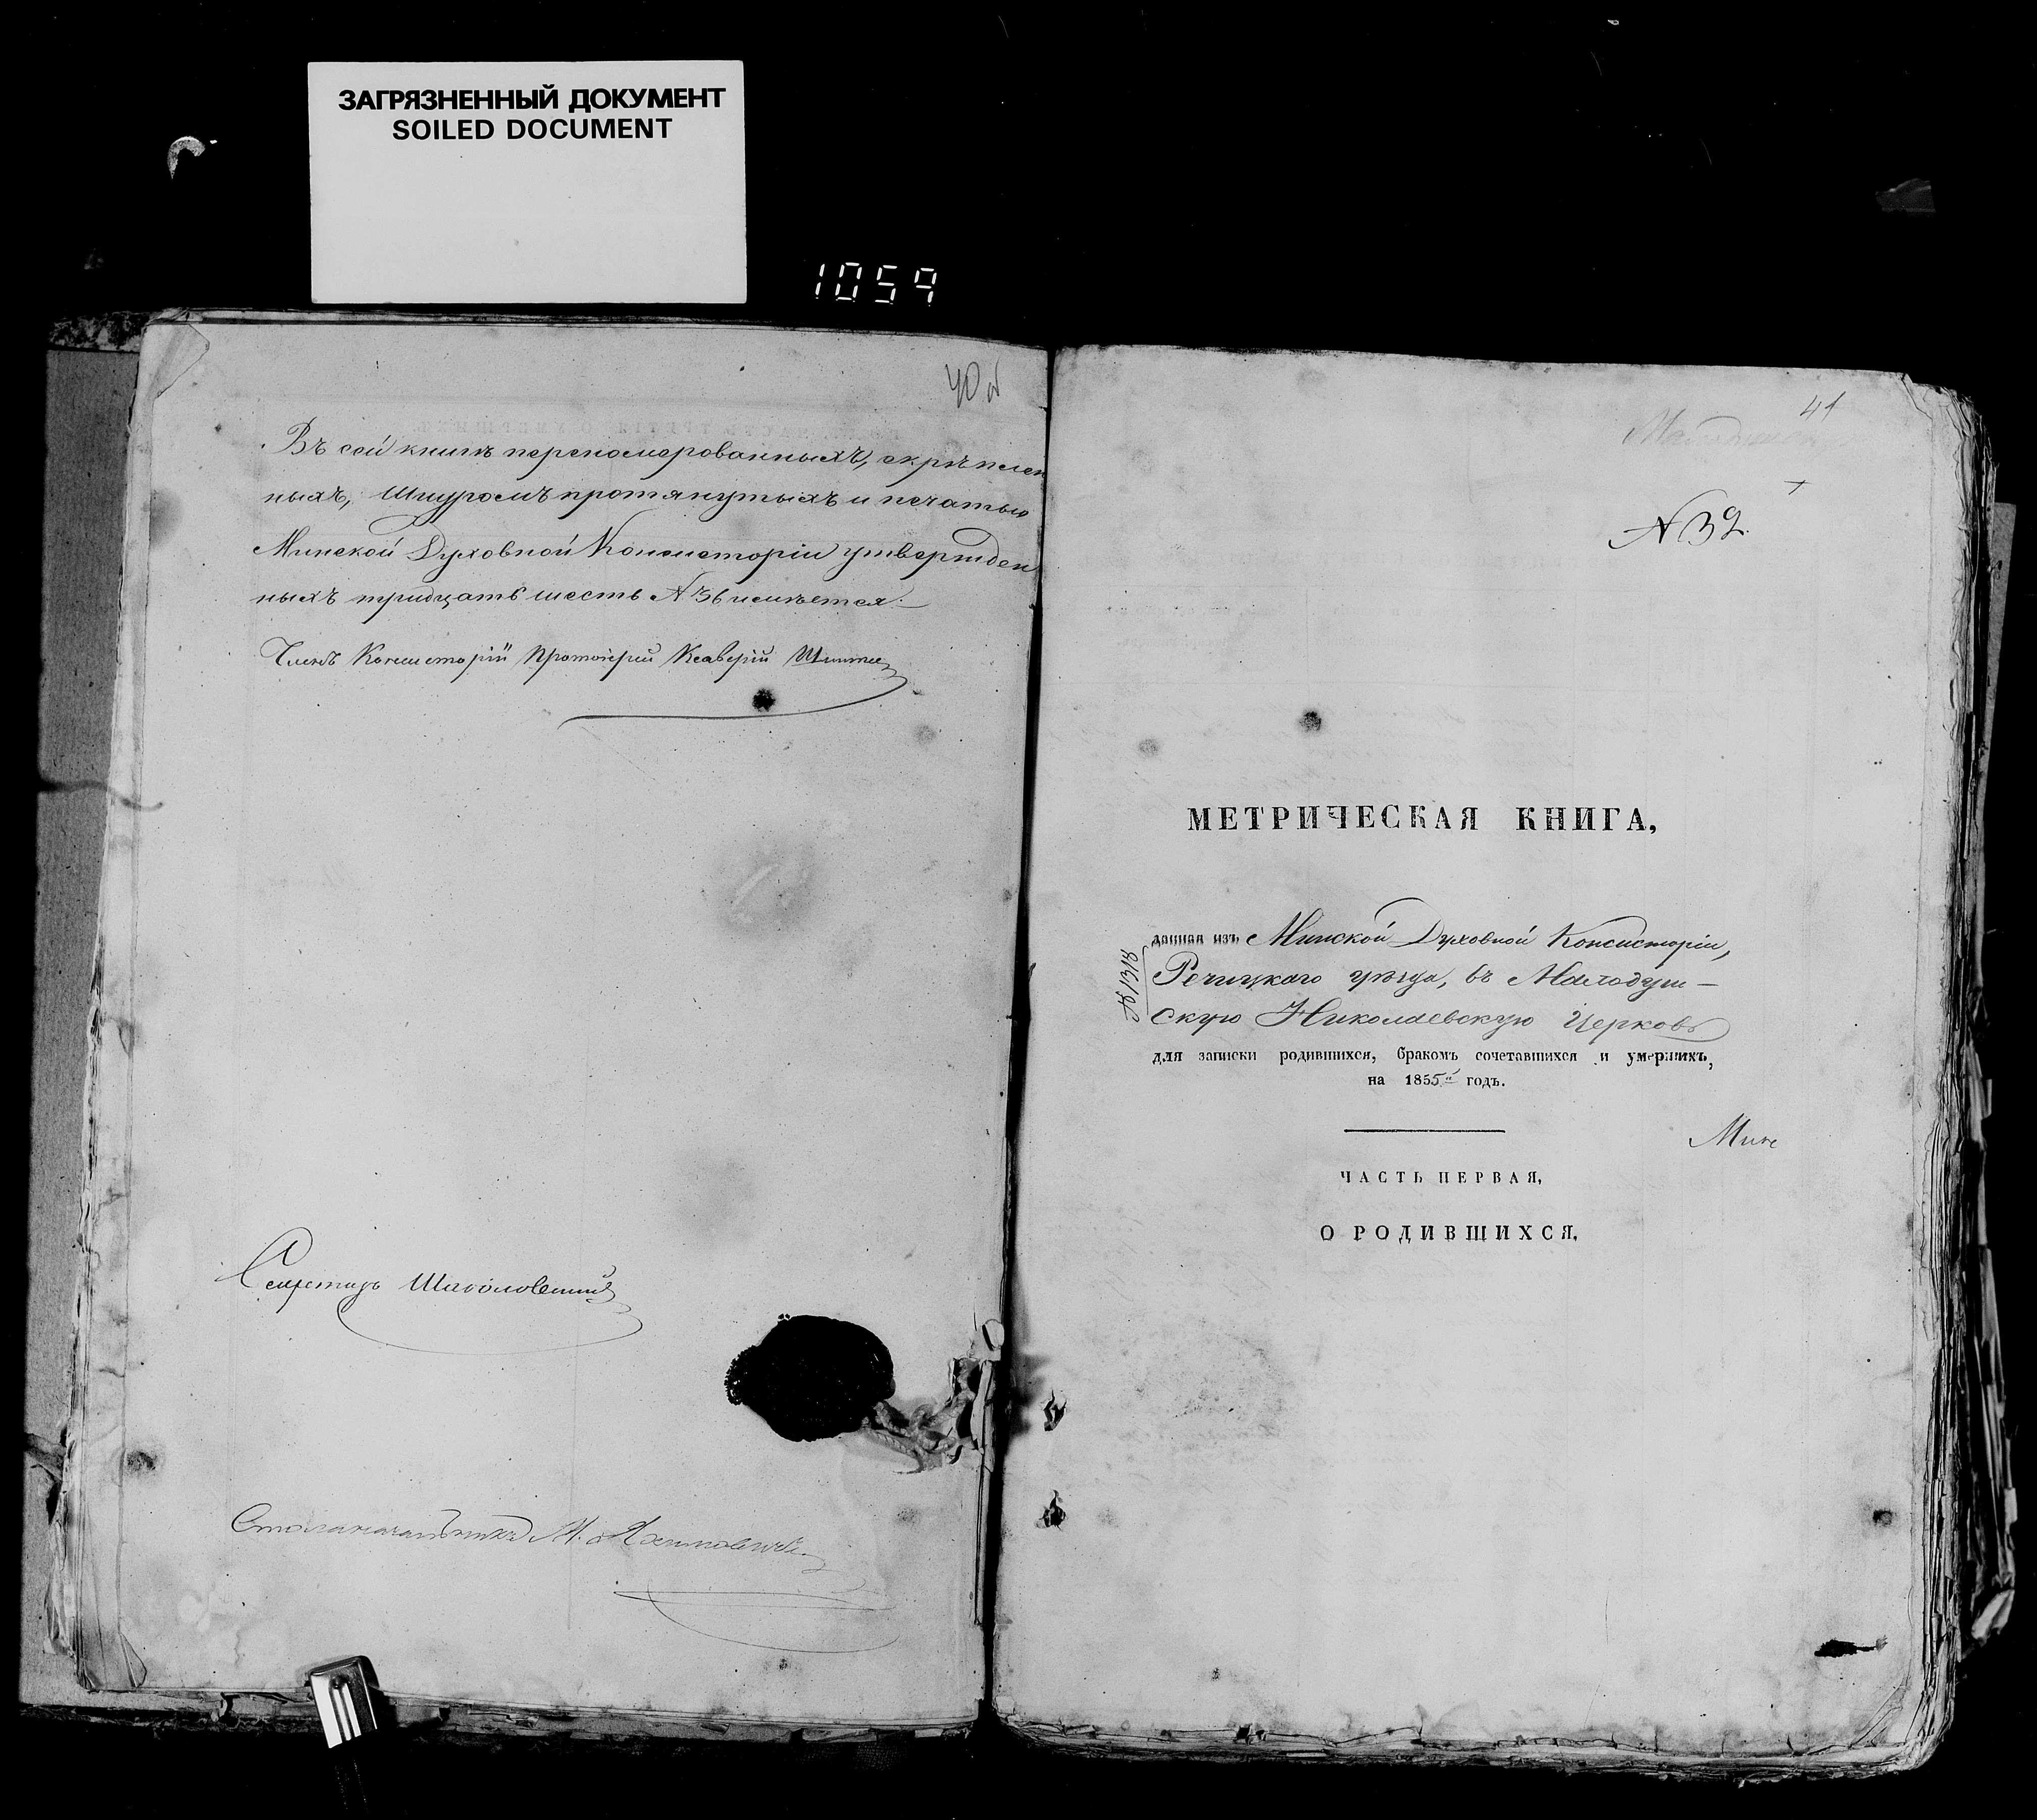 ЗАГРЯЗНЕННЫЙ ДОКУМЕНТ
SOILED DOCUMENT
1059
40 об
Въ сей книгѣ перепомерованныхъ, скрѣплен
ныхъ, шнуромъ протянутыхъ и печатью
Минской Духовной Консисторіи утвержден
ныхъ тридцать шесть №36 имѣется.
Членъ Консисторіи Протоіерей Ксаверій
Секретарь
Столоначальникъ М.
41
№ 32.
МЕТРИЧЕСКАЯ КНИГА,
№ 1318
данная изъ Минской Духовной Консисторіи,
Речицкаго уѣзда, въ Малодуш-
скую Николаевскую Церковь
для записки родившихся, бракомъ сочетавшихся и умершихъ,
на 1855й годъ.
Минс
ЧАСТЬ ПЕРВАЯ,
О РОДИВШИХСЯ.